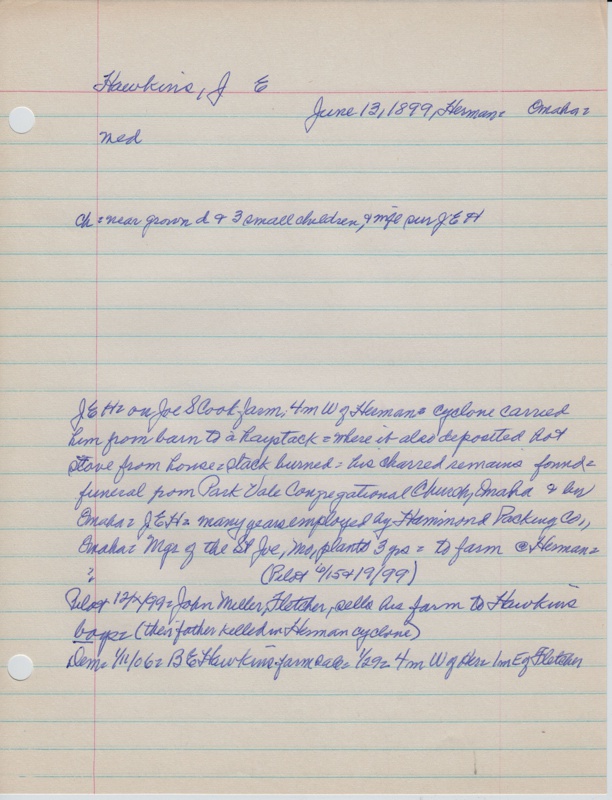 Hawkins, J E
June 13, 1899, Herman = Omaha =
Med
Ch: near grown d & 3 small children, & wife sur J E H
J E H = on Joe S Cook farm, 4 m W of Herman = cyclone carried
him from barn to a haystack = where it also deposited hot
stove from house = stack burned = his charred remains found =
funeral from Park Vale Congregational Church, Omaha & bu
Omaha = J E H = many years employed by Hammond Packing Co.,
Omaha = Mgr of the St Joe, Mo, plants 3 yrs = to farm @ Herman =
? (Pilot 6/15 & 19/99)
Pilot 12/ /99 = John Miller, Fletcher, sells his farm to Hawkins
boys = (their father killed in Herman cyclone)
Dem = 1/11/06 = B E Hawkins farm sale = 1/29 = 4 m W of Her = 1 m E of Fletcher